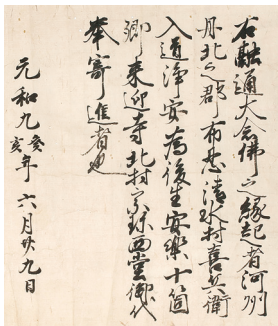 右融通大念佛之縁起者河州
丹北之郡布忍清水村喜兵衛
入道浄安為後生安樂十箇
郷来迎寺北村宗珎西堂御代
奉寄進者也
元和九癸亥年六月廿九日